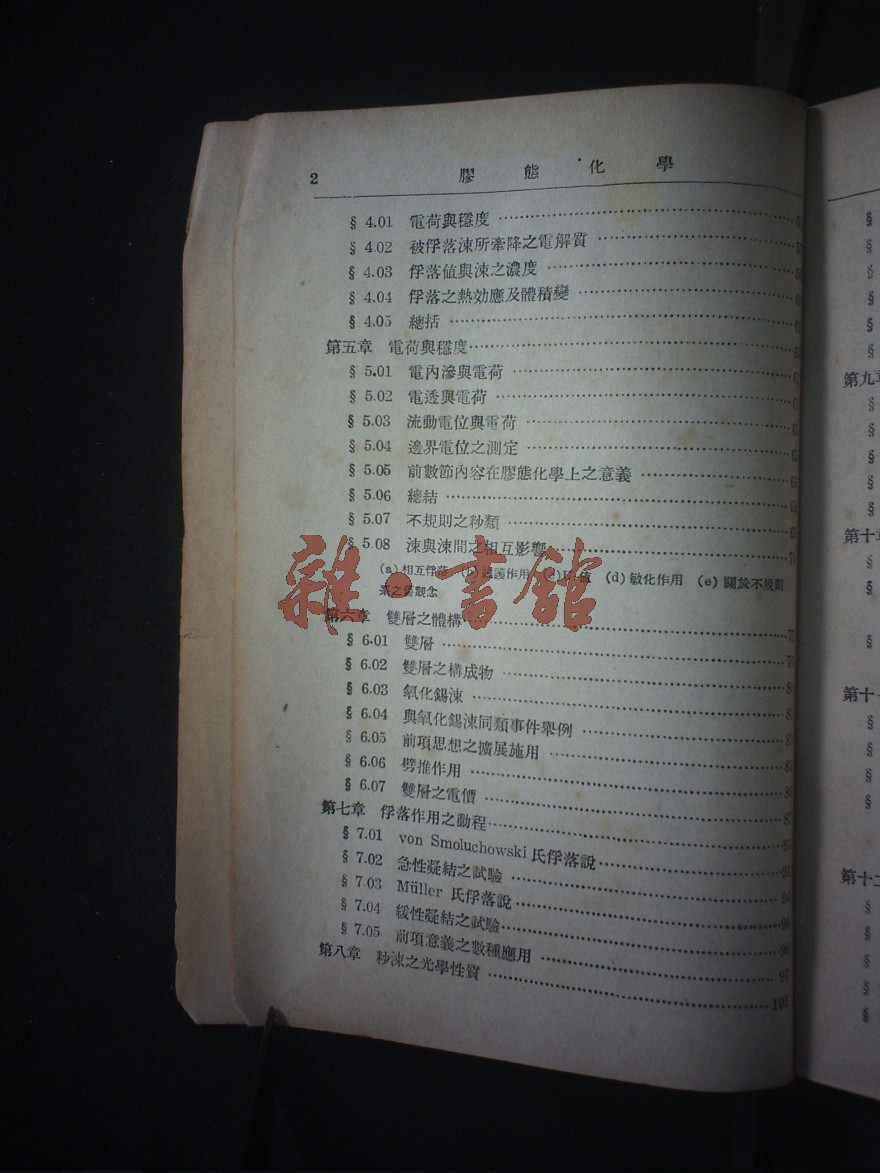 2 膠態化學
§ 4.01 電荷與穩度
§ 4.02 被俘落涑所牽降之電解質
§ 4.03 俘落値與涑之濃度
§ 4.04 俘落之熱効應及體積變
§ 4.05 總括
第五章 電荷與穩度
§ 5.01 電內滲與電荷
§ 5.02 電透與電荷
§ 5.03 流動電位與電荷
§ 5.04 邊界電位之測定
§ 5.05 前數節內容在膠態化學上之意義
§ 5.06 總結
§ 5.07 不規則之秒類
§ 5.08 涑與涑間之相互影響
(a) 相互俘落 護作用 (d) 敏化作用 (e) 關於不規則
觀念
第六章 雙層之體構
§ 6.01 雙層
§ 6.02 雙層之構成物
§ 6.03 氧化錫涑
§ 6.04 與氧化錫涑同類事件舉例
§ 6.05 前項思想之擴展施用
§ 6.06 劈推作用
§ 6.07 雙層之電價 87
第七章 俘落作用之動程
§ 7.01 von Smoluchowski 氏俘落說 93
§ 7.02 急性凝結之試驗 94
§ 7.03 Müller 氏俘落說 95
§ 7.04 緩性凝結之試驗 96
§ 7.05 前項意義之數種應用 97
第八章 秒涑之光學性質 102
雜·書館
§
§
§
§
§
§
第九章
§
§
§
§
§
第十章
§
§
§
§
第十一
§
§
§
§
第十二
§
§
§
§
§